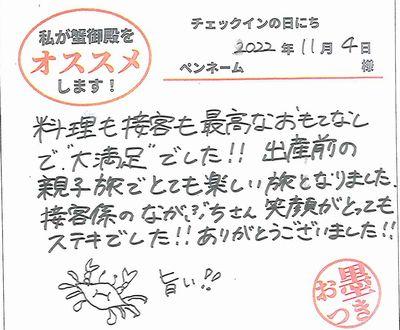 私が蟹御殿を
オススメ
します!
チェックインの日にち
2022年 11月 4日
ペンネーム 様
料理も接客も最高なおもてなし
で"大満足"でした!! 出産前の
親子旅でとても楽しい旅となりました。
接客係のながぶちさん 笑顔がとっても
ステキでした!! ありがとうございました!!
旨い!!
お墨つき